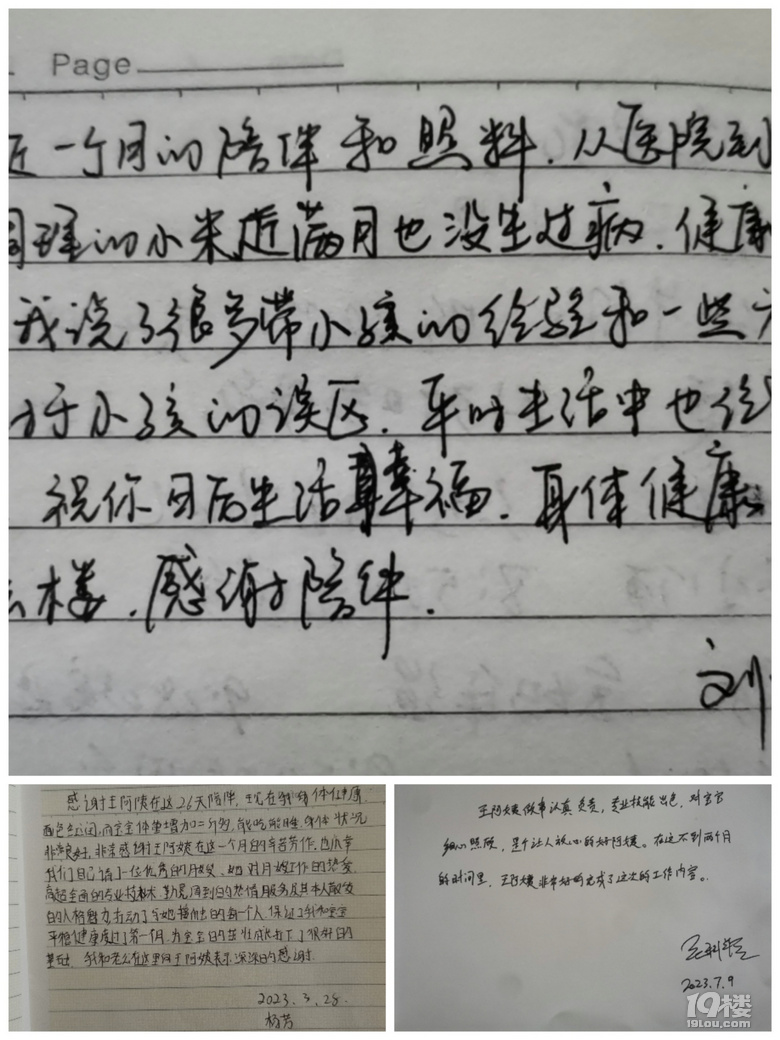 Page
近一个月的陪伴和照料.从医院到
的小米近满月也没生过病.健康
我说了很多带小孩的经验和一些
于小孩的误区.平时生活中也
祝你日后生活幸福.身体健康
楼.感谢陪伴.
刘
感谢王阿姨在这26天陪伴,现在我身体健康,
面色红润,而宝宝体重增加二斤多,能吃能睡,身体状况
非常良好,非常感谢王阿姨在这一个月的辛苦劳作.也庆幸
我们自己请了一位优秀的月嫂.她对月嫂工作的热爱
高超全面的专业技术 勤恳周到的热情服务及其本人散发
的人格魅力打动了与她接触的每一个人.保证了我和宝宝
平稳健康度过了第一个月,为宝宝的茁壮成长打下了很好的
基础.我和老公在这里向王阿姨表示深深的感谢.
2023.3.28.
杨芳
王阿姨做事认真负责,专业技能出色,对宝宝
细心照顾,是个让人放心的好阿姨。在这不到两个月
的时间里,王阿姨非常好的完成了这次的工作内容。
2023.7.9
19楼
19lou.com